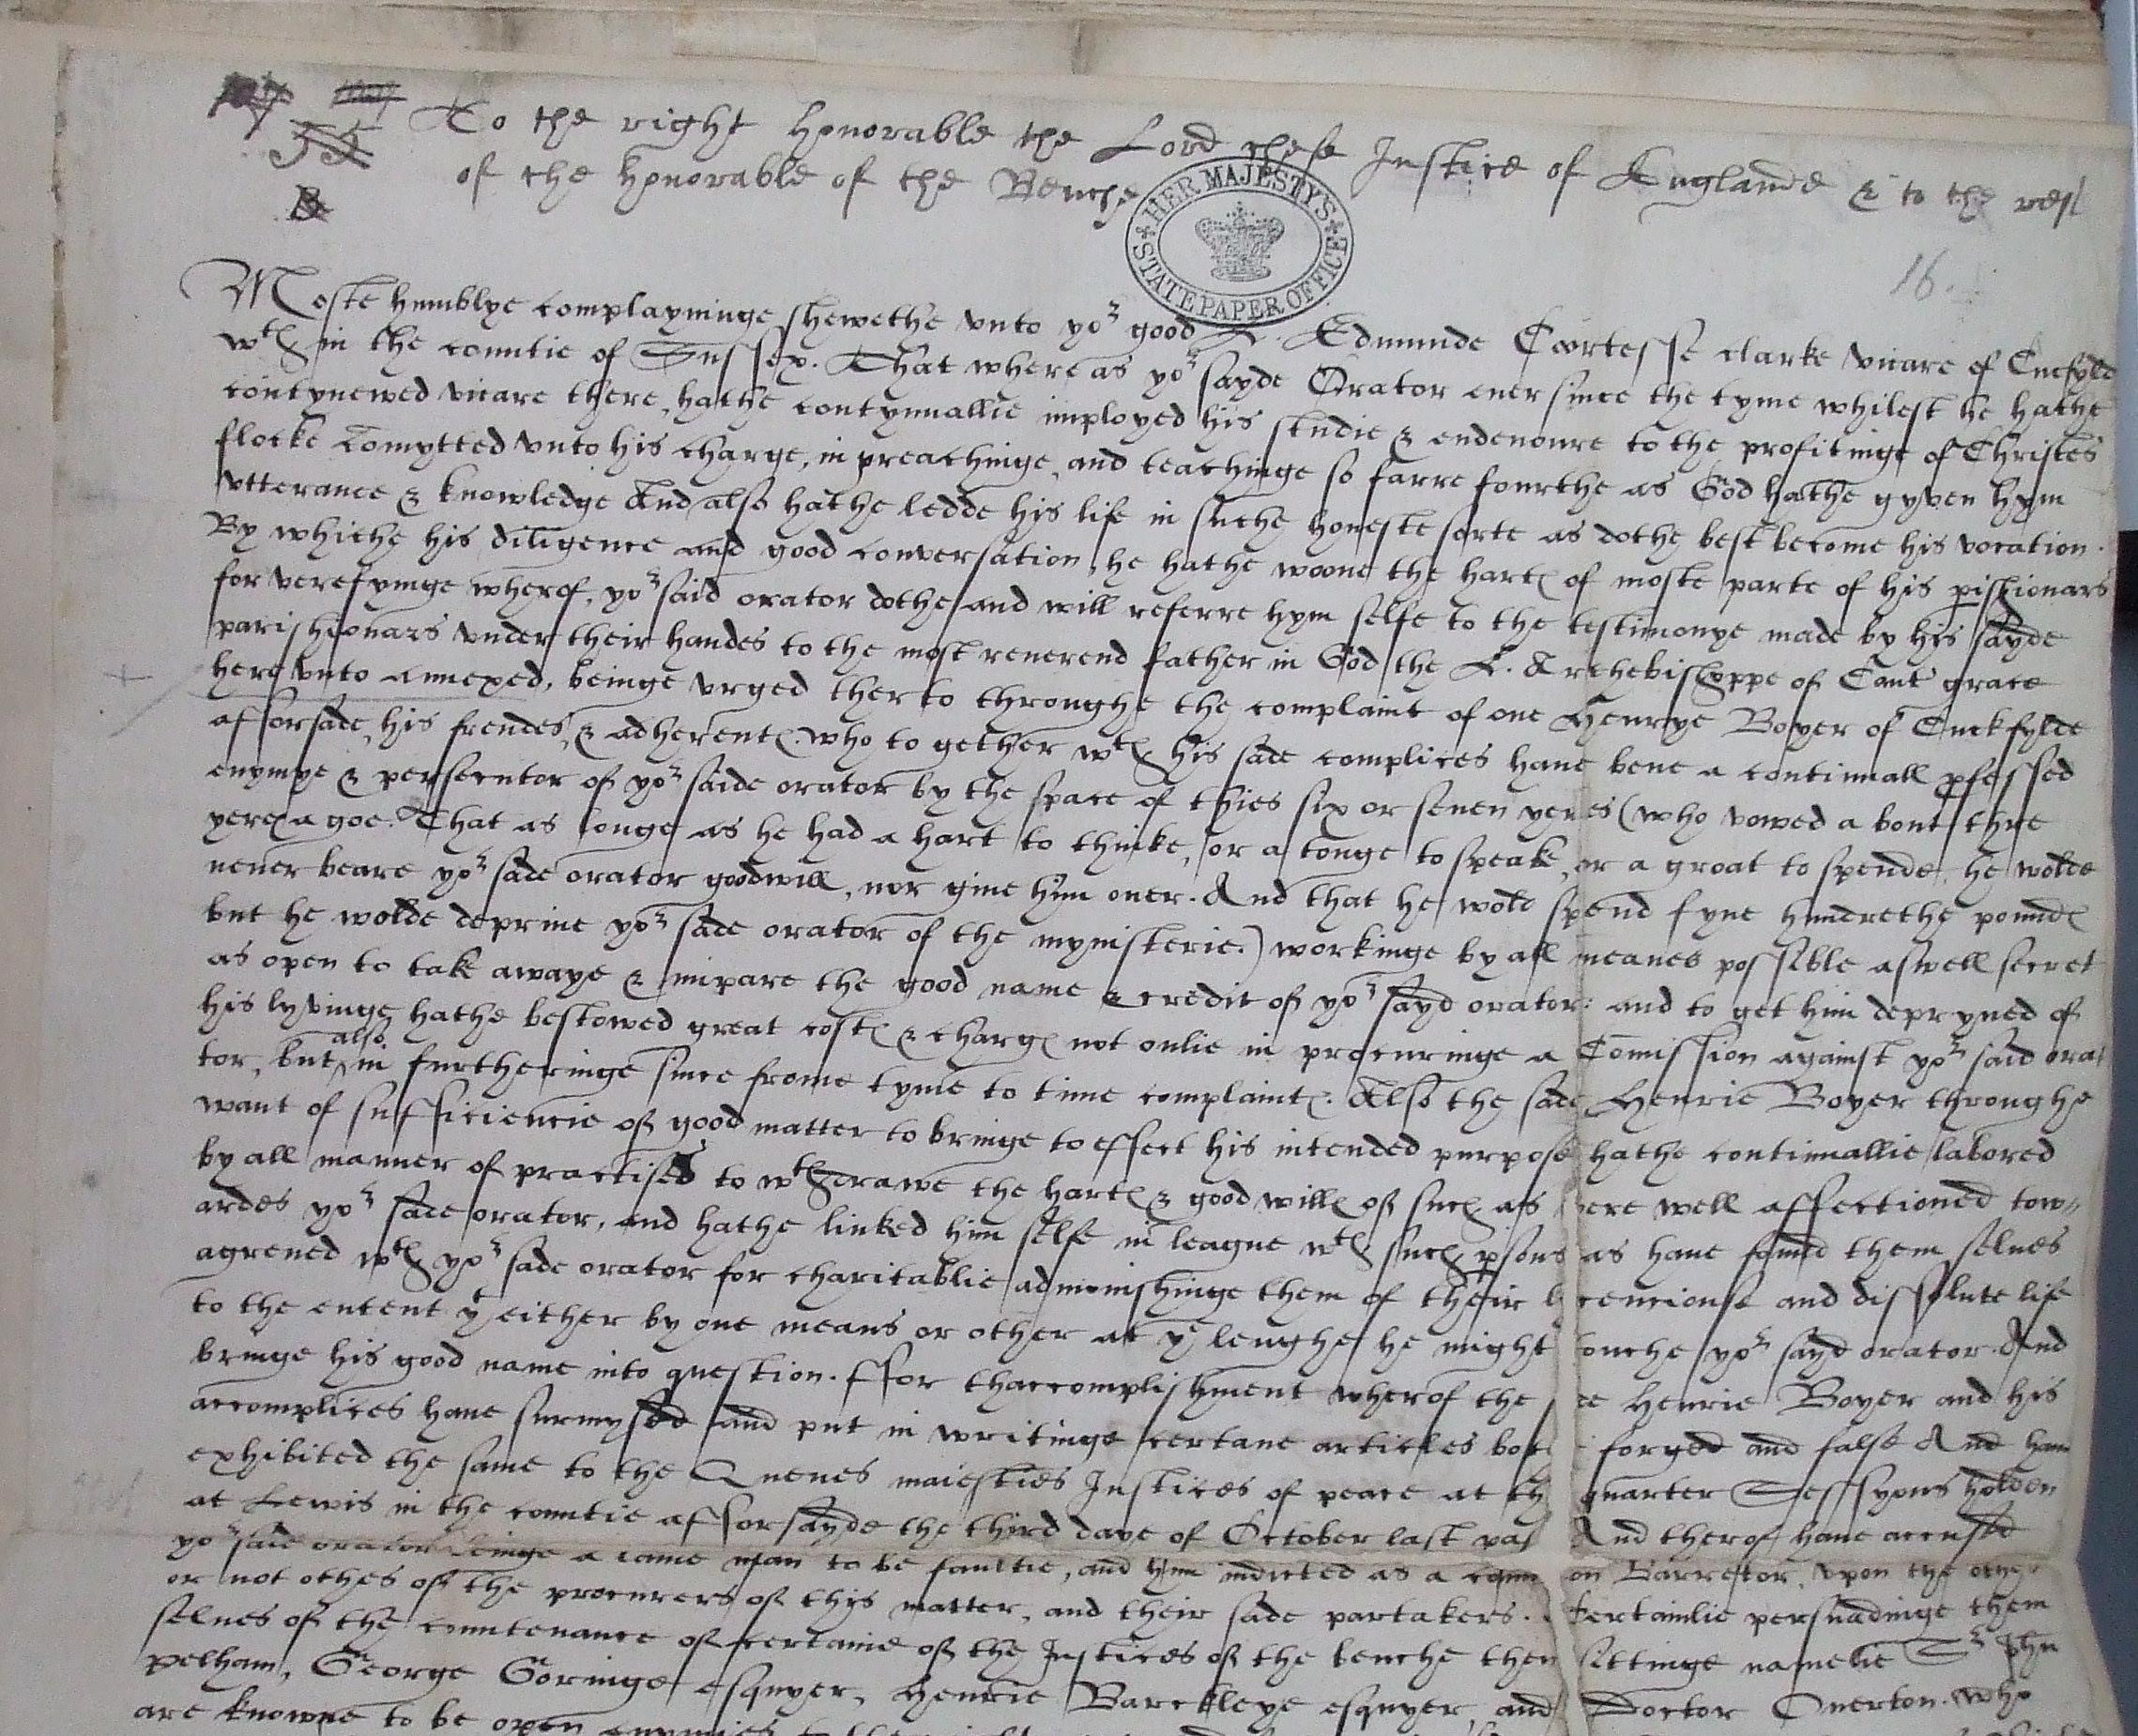 55
B
To the right honorable the Lord chefe Justice of Englande & to the rest
of the honorable of the Benche
HER MAJESTY'S STATE PAPER OFFICE
16.
Moste humblye complayninge shewethe vnto yor good L. Edmunde Coortesse clarke vicare of Cucfyld
wth in in the countie of Sussex. That where as yor sayde Orator euer since the tyme whilest he hathe
contynewed vicare there, hathe contynuallie imployed his studie & endeuoure to the profitinge of Christes
flocke comytted vnto his charge, in preachinge, and teachinge so farre fourthe as God hathe gyven hym
vtterance & knowledge And also hathe ledde his life in suche honeste sorte as dothe best become his vocation.
By whiche his diligence and good conversation he hathe woone the hartes of moste parte of his pishionars
for verefyinge wherof, yor said orator dothe and will referre hym selfe to the testimonye made by his sayde
parishionars vnder their handes to the most reuerend father in God the L. Archebishoppe of Cant grace
here vnto annexed, beinge vrged therto throughe the complaint of one Henrye Boyer of Cuckfylde
afforsade, his frendes, & adherentes. who to gether wth his sade complices haue bene a continuall pfessed
enymye & persecutor of yor saide orator by the space of thies six or seuen yeres (who vowed a bout thre
yeres a goe. That as longe as he had a hart to thinke, or a tonge to speak, or a groat to spende, he wolde
neuer beare yor sade orator goodwill, nor giue him ouer. And that he wold spend fyue hundrethe poundes
but he wolde depriue yor sade orator of the mynisterie.) workinge by all meanes possible aswell secret
as open to tak awaye & impare the good name & credit of yor sayd orator: and to get him depryued of
his lyvinge hathe bestowed great costes & charges not onlie in procuringe a Comission against yor said ora
tor, but also in furtheringe since frome tyme to time complaintes. Also the sade Henrie Boyer throughe
want of sufficiencie of good matter to bringe to effect his intended purpose hathe continuallie labored
by all manner of practises to wthdrawe the hartes & good willes of such as were well affectioned tow
ardes yor sade orator, and hathe linked him selfe in league wth such psons as haue found them selues
agreued wth yor sade orator for charitablie admonishinge them of their lycenciouse and dissolute life
to the entent yt either by one means or other at ye lenghe he might touche yor sayd orator. And
bringe his good name into question. ffor thaccomplishment wherof the de Henrie Boyer and his
accomplices haue surmysed and put in writinge certane articles bot forged and false And haue
exhibited the same to the Quenes maiesties Justices of peace at th quarter Sessyons holden
at Lewis in the countie afforsayde the third daye of October last pas And therof haue accused
yor sade orator beinge a lame man to be faultie, and him indicted as a com on Barretor, vpon the othe
or not othes of the procurers of this matter, and their sade partakers. Certainlie persuadinge them
selues of the countenance of certaine of the Justices of the benche then sittinge namelie Sr Jhn
Pelham, George Goringe esquyer, Henrie Barckleye esquyer, and Doctor Ouerton. who
are knowne to be open enymies